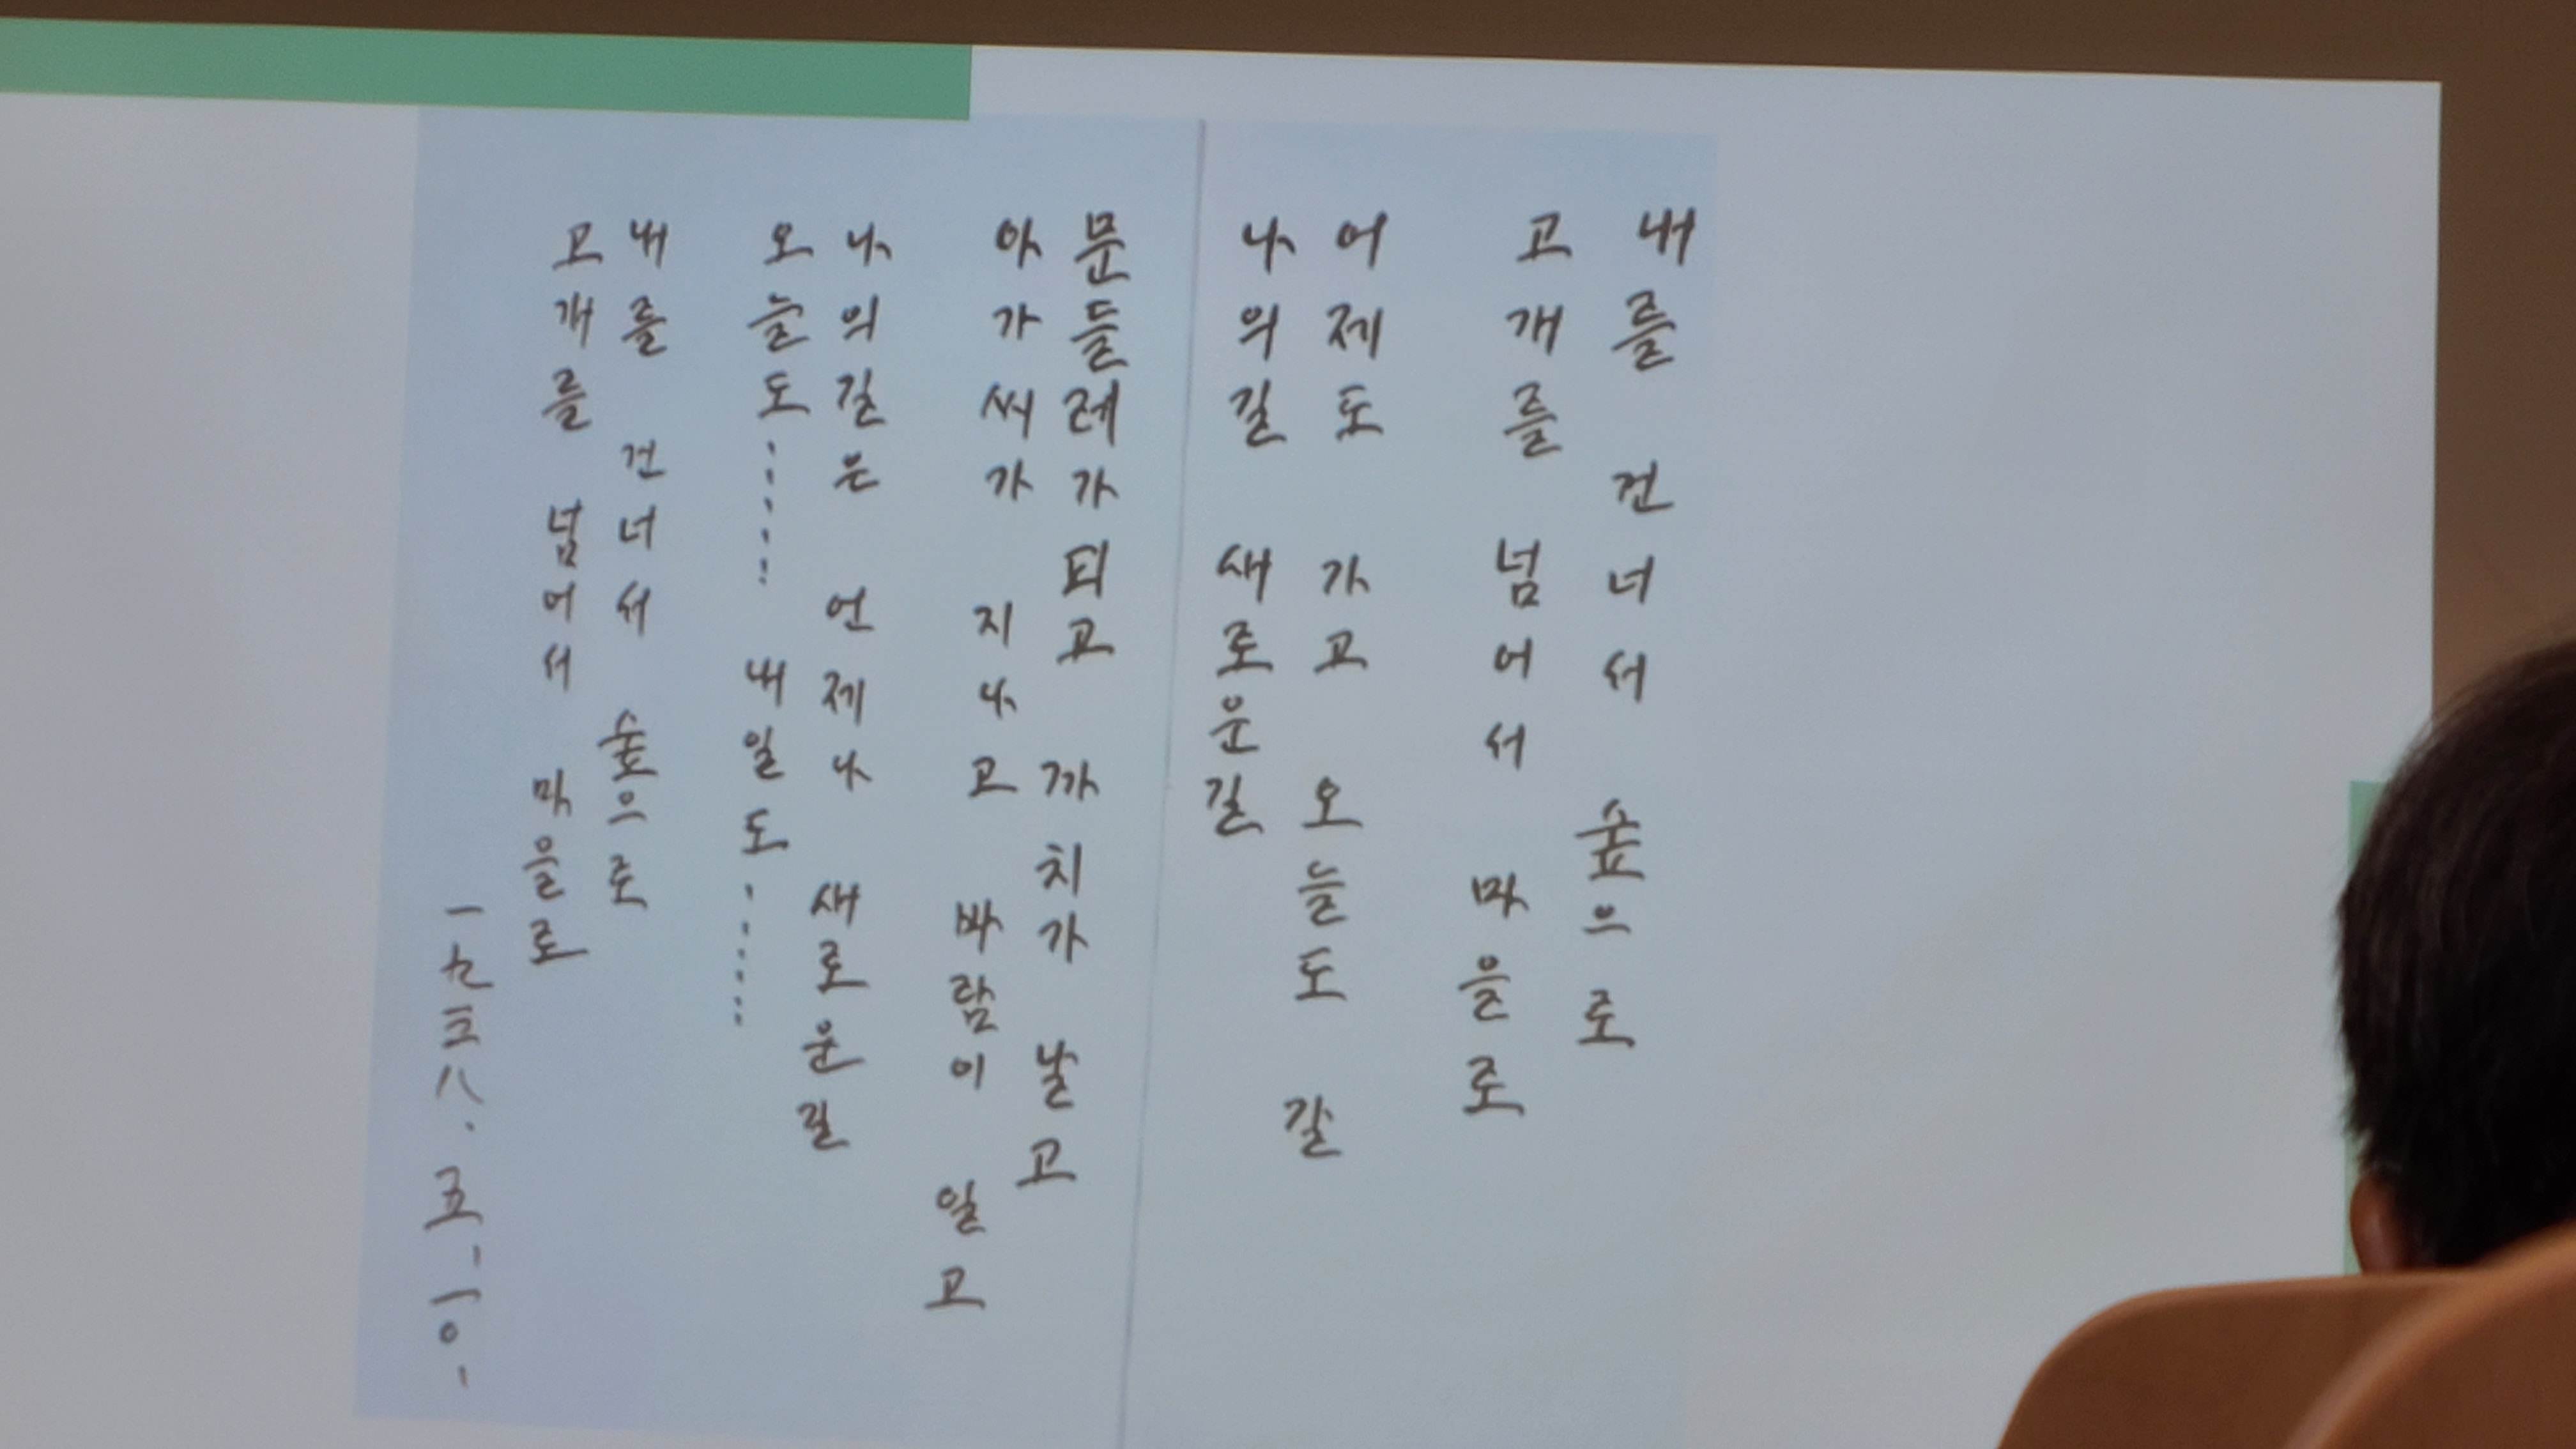 내를 건너서 숲으로
고개를 넘어서 마을로
어제도 가고 오늘도 갈
나의길 새로운길
문들레가 피고 까치가 날고
아가씨가 지나고 바람이 일고
나의길은 언제나 새로운길
오늘도…… 내일도……
내를 건너서 숲으로
고개를 넘어서 마을로
一九三八·五·一〇·